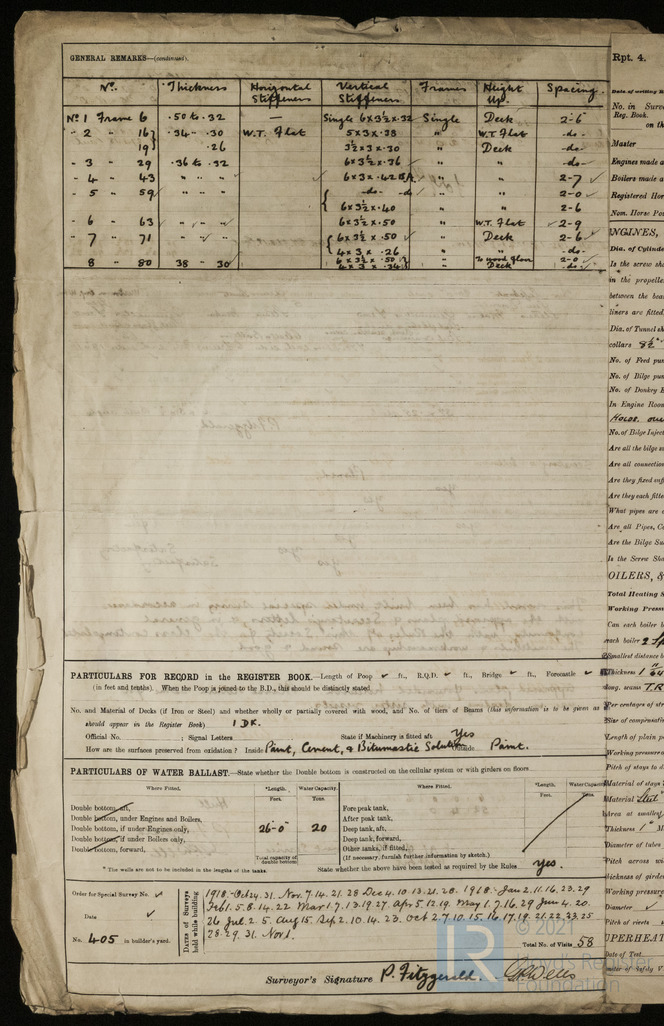 GENERAL REMARKS—(continued).
Nº. Thickness Horizontal Stiffeners Vertical Stiffeners Frames Height Up. Spacing
Nº 1 Frame 6 .50 to .32 — Single 6x3½x.32 Single Deck 2-6
" 2 " 16} .34 " .30 W.T. Flat 5x3x.38 " W.T. Flat -do-
19} .26 3½x3x.30 " Deck -do-
" 3 " 29 .36 to .32 6x3½x.36 " " -do-
" 4 " 43 " " " 6x3x.42 BA " " 2-7
" 5 " 59 " " " { -do- -do " " 2-0
6x3½x.40 " 2-6
" 6 " 63 " " " 6x3½x.50 " W.T. Flat 2-9
" 7 " 71 " " " { 6x3½x.50 " Deck 2-6
4x3x.26 " -do-
8 " 80 38 " 30 6x3½x.50 " To wood floor 2-0
4x3x.34 Deck -do-
PARTICULARS FOR RECORD in the REGISTER BOOK.—Length of Poop ✓ ft., R.Q.D. ✓ ft., Bridge ✓ ft., Forecastle ✓
(in feet and tenths). When the Poop is joined to the B.D., this should be distinctly stated
No. and Material of Decks (if Iron or Steel) and whether wholly or partially covered with wood, and No. of tiers of Beams (this information is to be given as
should appear in the Register Book) 1 DK.
Official No. ; Signal Letters State if Machinery is fitted aft Yes
How are the surfaces preserved from oxidation? Inside Paint, Cement, & Bitumastic Solution Outside Paint.
PARTICULARS OF WATER BALLAST.—State whether the Double bottom is constructed on the cellular system or with girders on floors
Where Fitted. *Length. Water Capacity. Where Fitted. *Length. Water Capacity.
Feet. Tons. Feet. Tons.
Double bottom, aft, Fore peak tank,
Double bottom, under Engines and Boilers, After peak tank,
Double bottom, if under Engines only, 26-0 20 Deep tank, aft,
Double bottom, if under Boilers only, Deep tank, forward,
Double bottom, forward, Other tanks, if fitted,
Total capacity of double bottom (If necessary, furnish further information by sketch.)
* The wells are not to be included in the lengths of the tanks. State whether the above have been tested as required by the Rules Yes.
Order for Special Survey No. ✓
Date ✓
No. 405 in builder's yard.
Dates of Surveys held while building
Oct 24. 31. Nov. 7. 14. 21. 28 Dec 4. 10. 13. 21. 28. 1918- Jan 2. 11. 16. 23. 29
Feb 1. 5. 8. 14. 22 Mar 1. 7. 13. 19. 27. Apr 5. 12. 19. May 1. 7. 16. 29 Jun 4. 20.
26 Jul. 2. 5. Aug 15. Sep 2. 10. 14. 23. Oct 2. 7. 10. 15. 16. 17. 19. 21. 22. 23. 25
28. 29. 31. Nov 1.
Total No. of Visits 58
Surveyor's Signature P. Fitzgerald.
© 2021
LR
Foundation
Rpt. 4.
Date of writing
No. in Surv
Reg. Book.
on th
Master
Engines made a
Boilers made a
Registered Hor
Nom. Horse Po
NGINES,
Dia. of Cylinde
Is the screw sha
in the propelle
between the bea
liners are fitted,
Dia. of Tunnel sh
collars 8½"
No. of Feed pum
No. of Bilge pum
No. of Donkey E
In Engine Room
Holds.
No. of Bilge Inject
Are all the bilge s
Are all connection
Are they fixed suff
Are they each fitte
What pipes are c
Are all Pipes, Co
Are the Bilge Su
Is the Screw Sha
OILERS, &
Total Heating S
Working Press
Can each boiler b
each boiler
Smallest distance b
Thickness
long. seams T.R
Per centages of str
Size of compensatin
Length of plain p
Working pressure
Pitch of stays to d
Material of stays
Material Steel
Area at smallest
Thickness 1" M
Diameter of tubes
Pitch across wi
thickness of girder
Working pressure
Diameter ✓
Pitch of rivets
UPERHEAT
Date of Test